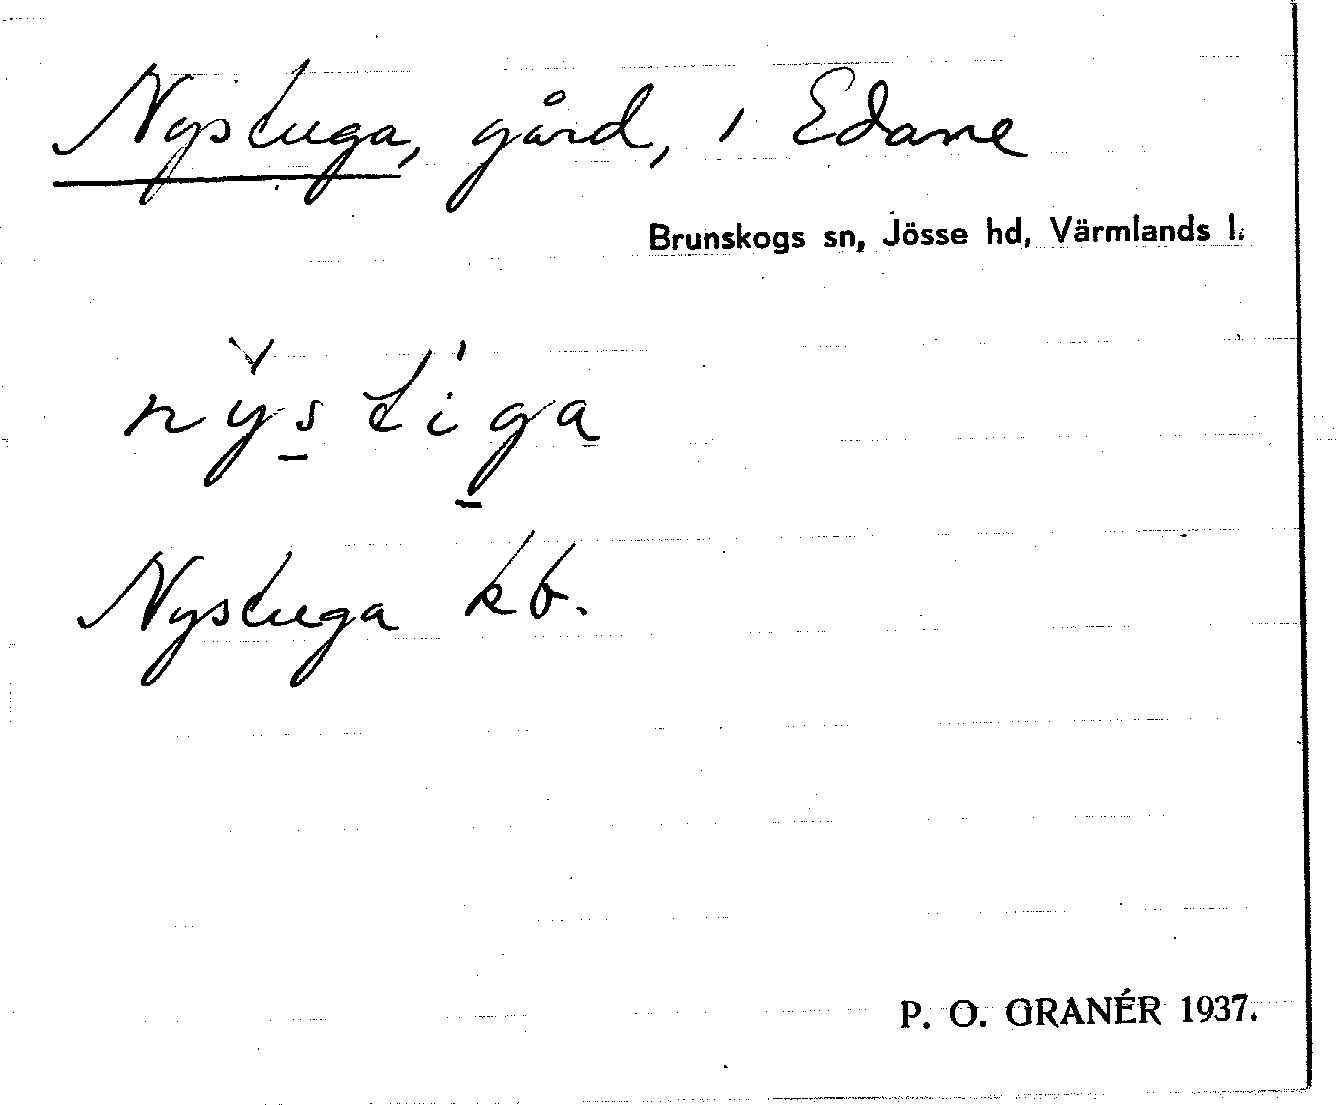 Nystuga, gård, i Edane
Brunskogs sn, Jösse hd, Värmlands l.
ny̌s̱tíg̱a
Nystuga kb.
P. O. GRANÉR 1937.